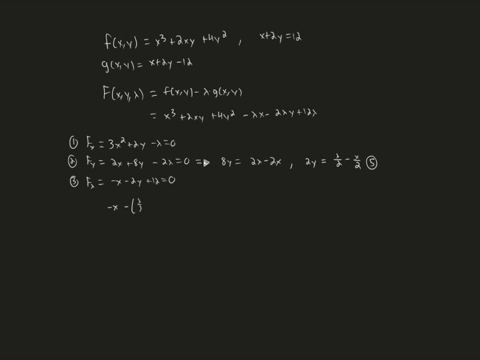 f(x,y) = x³ + 2xy + 4y² , x+2y=12
g(x,y) = x+2y-12
F(x,y,λ) = f(x,y) - λ g(x,y)
= x³ + 2xy + 4y² - λx - 2λy + 12λ
① Fₓ = 3x² + 2y - λ = 0
② Fᵧ = 2x + 8y - 2λ = 0 => 8y = 2λ - 2x , 2y = λ/2 - x/2 ⑤
③ F_λ = -x - 2y + 12 = 0
-x - (λ/